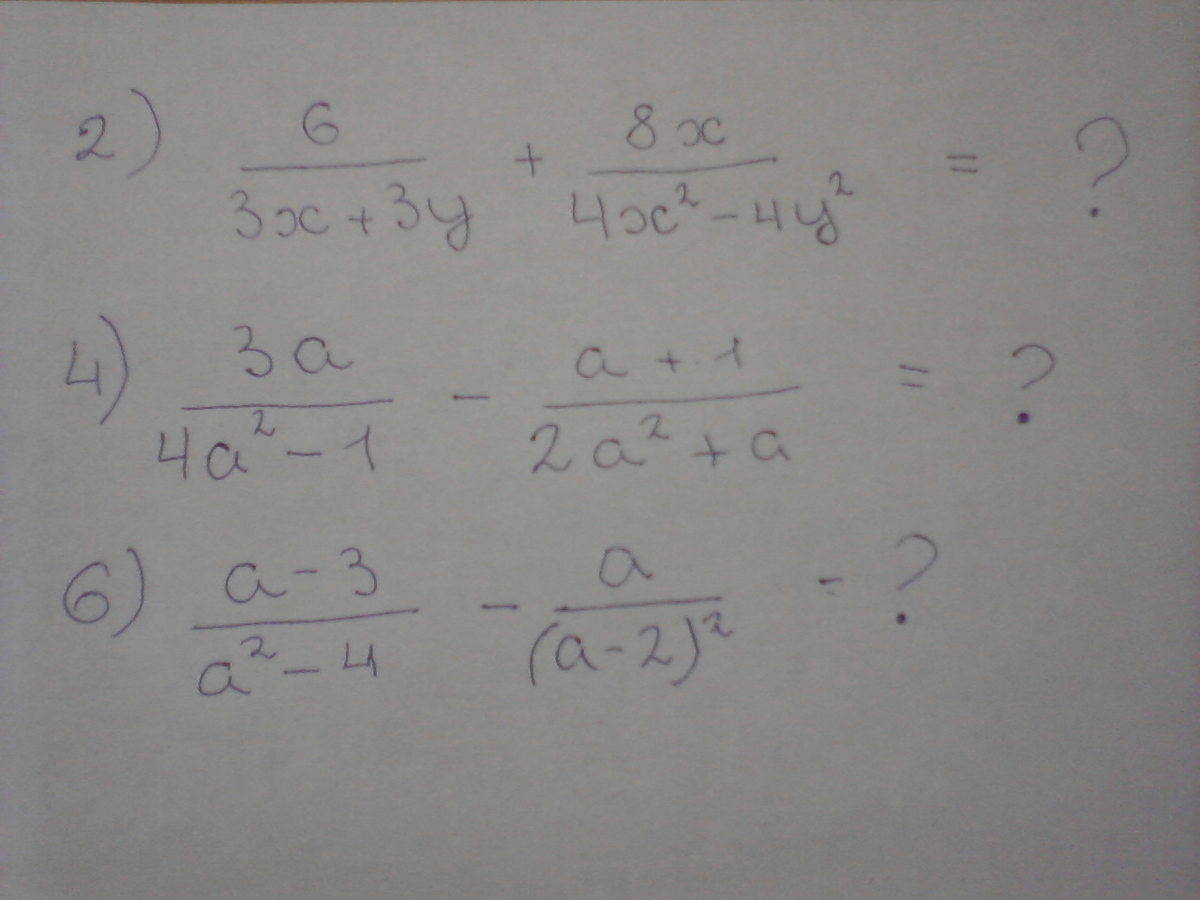 2) 6/(3x+3y) + 8x/(4x²-4y²) = ?
4) 3a/(4a²-1) - (a+1)/(2a²+a) = ?
6) (a-3)/(a²-4) - a/(a-2)² = ?